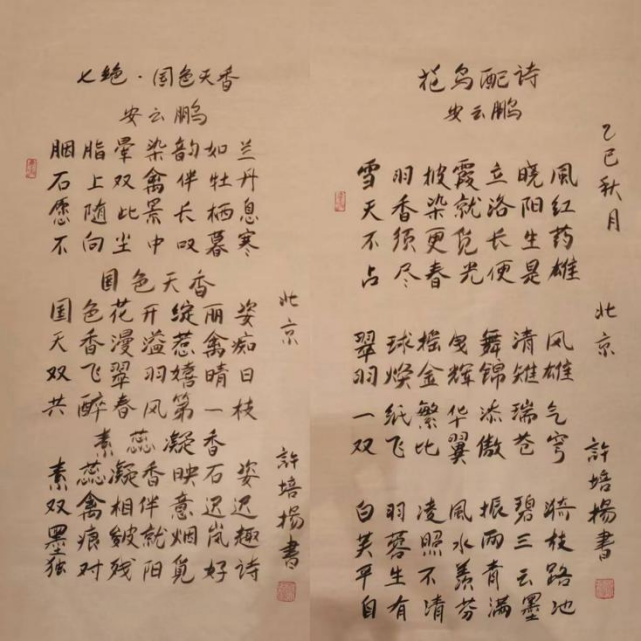 七绝·国色天香
安云鹏
胭脂晕染韵如兰
石上双禽伴牡丹
愿随此景长栖息
不向尘中叹暮寒
国色天香
国色花开绽丽姿
天香漫溢惹禽痴
双飞翠羽嬉晴日
共醉春风第一枝
素蕊凝香
素蕊凝香映石姿
双禽相伴意迟迟
墨痕皴就烟岚趣
独对残阳觅好诗
北京
許培揚書
花鸟配诗
安云鹏
雪羽披霞立晓风
天香染就洛阳红
不须更觅长生药
占尽春光便是雄
翠球摇曳舞清风
羽焕金辉锦雉雄
一纸繁华添瑞气
双飞比翼傲苍穹
白羽凌风振碧漪
芙蓉照水两三枝
平生不羡青云路
自有清芬满墨池
乙巳秋月
北京
許培揚書